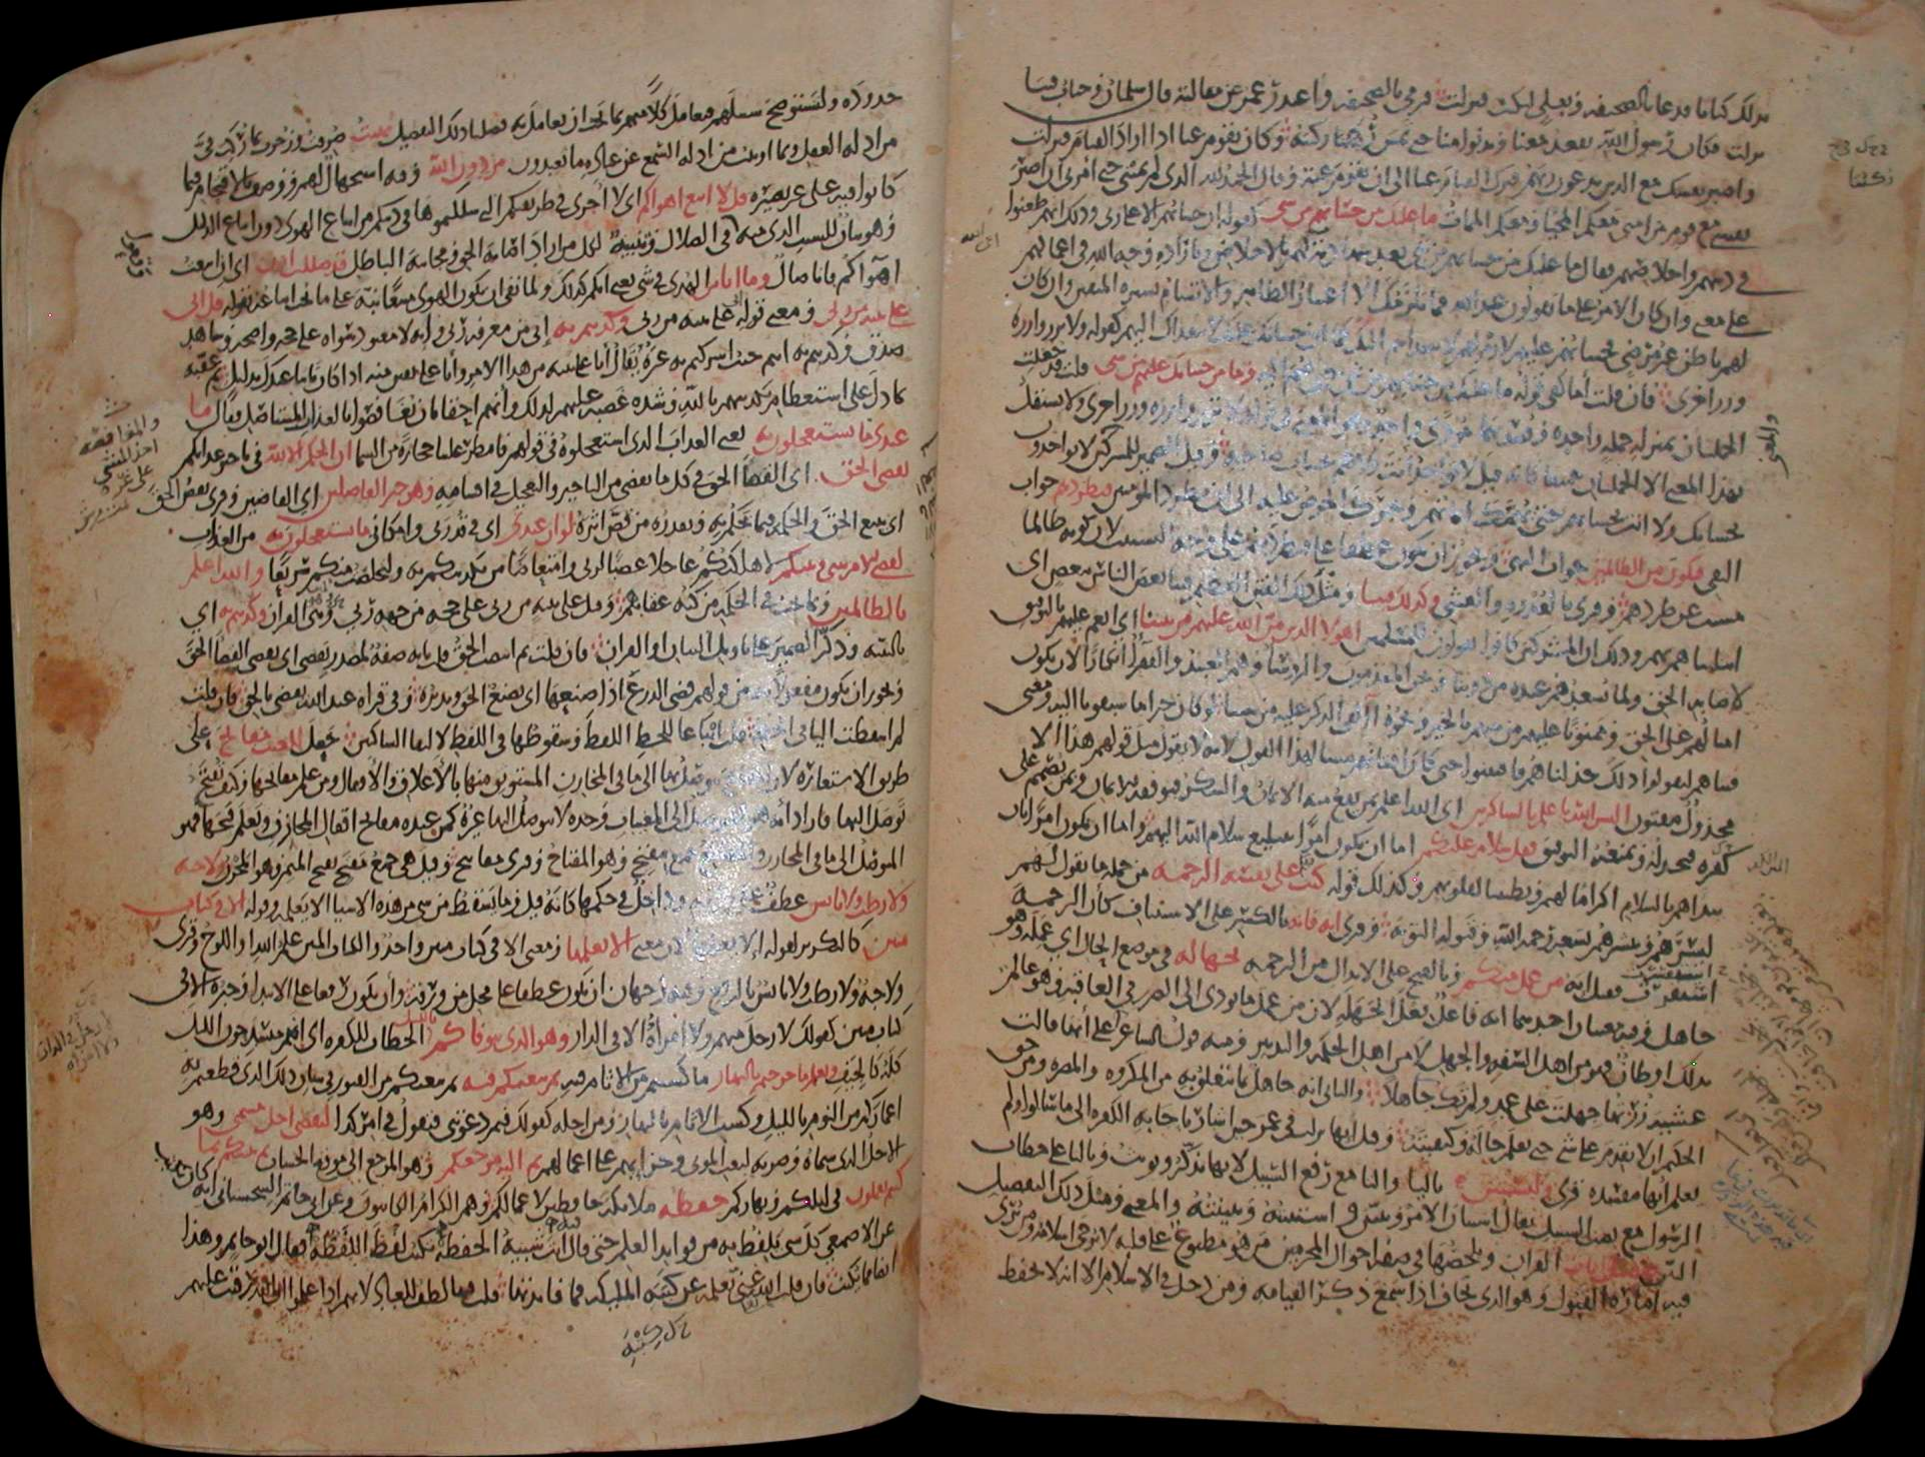 بذلك كتابا فدعا بالصحيفه وبعلى ليكتب فنزلت فرمى بالصحيفه واعتذر عمر عن مقالته قال سلمان وخباب فينا
نزلت فكان رسول الله يقعد معنا ويدنو منا حتى تمس ركبتنا ركبته وكان يقوم عنا اذا اراد القيام فنزلت
واصبر نفسك مع الذين يدعون ربهم فترك القيام عنا الى ان نقوم عنه وقال الحمد لله الذى لم يمتنى حتى امرنى ان اصبر
نفسى مع قوم من امتى معكم المحيا ومعكم الممات ما عليك من حسابهم من شى كقوله ان حسابهم الا على ربى وذلك انهم طعنوا
فى دينهم واخلاصهم فقال ما عليك من حسابهم من شى بعد شهادته لهم بالاخلاص وبارادة وجه الله فى اعمالهم
على معنى وان كان الامر على ما يقولون عند الله فما يلزمك الا اعتبار الظاهر والاتسام بسيرة المتقين وان كان
لهم باطن غير مرضى فحسابهم عليهم لازم لهم لا يتعداهم اليك كما ان حسابك عليك لا يتعداك اليهم كقوله ولا تزر وازرة
وزر اخرى فان قلت اما كفى قوله ما عليك من حسابهم من شى حتى ضم اليه وما من حسابك عليهم من شى قلت قد جعلت
الجملتان بمنزلة جملة واحدة وقصد بهما مؤدى واحد وهو المعنى فى قوله ولا تزر وازرة وزر اخرى ولا يستقل
بهذا المعنى الا الجملتان جميعا كانه قيل لا تؤاخذ انت ولا هم بحساب صاحبه وقيل الضمير للمشركين لا يواخذون
بحسابك ولا انت بحسابهم حتى يهمك ايمانهم ويجرك الحرص عليه الى ان تطرد المومنين فتطردهم جواب
النفى فتكون من الظالمين جواب النهى ويجوز ان يكون عطفا على فتطردهم على وجه التسبيب لان كونه ظالما
مسبب عن طردهم وقرى بالغدوة والعشى وكذلك فتنا ومثل ذلك الفتن العظيم فتنا بعض الناس ببعض اى
ابتليناهم بهم وذلك ان المشركين كانوا يقولون للمسلمين اهولا الذين من الله عليهم من بيننا اى انعم عليهم بالتوفيق
لاصابة الحق ولما يسعدهم عنده من دوننا ونحن المقدمون والروساء وهم العبيد والفقراء انكارا لان يكون
امثالهم على الحق وممنونا عليهم من بينهم بالخير ونحوه االقى الذكر عليه من بيننا لو كان خيرا ما سبقونا اليه ومعنى
فتناهم ليقولوا ذلك خذلناهم فافتتنوا حتى كان افتتانهم سببا لهذا القول لانه لا يقول مثل قولهم هذا الا
مخذول مفتون اليس الله باعلم بالشاكرين اى الله اعلم بمن يقع منه الايمان والشكر فيوفقه للايمان وبمن يصمم على
كفره فيخذله ويمنعه التوفيق فقل سلام عليكم اما ان يكون امرا بتبليغ سلام الله اليهم واما ان يكون امرا بان
يبداهم بالسلام اكراما لهم وتطييبا لقلوبهم وكذلك قوله كتب على نفسه الرحمة من جملة ما يقول لهم
ليسرهم ويبشرهم بسعة رحمة الله وقبوله التوبة وقرى انه فانه بالكسر على الاستيناف كان الرحمة
استفسرت فقيل انه من عمل منكم وبالفتح على الابدال من الرحمة بجهالة فى موضع الحال اى عمله وهو
جاهل وفيه معنيان احدهما انه فاعل فعل الجهلة لان من عمل ما يودى الى الضرر فى العاقبة وهو عالم
بذلك او ظان فهو من اهل السفه والجهل لا من اهل الحكمة والتدبير ومنه قول الشاعر على انها قالت
عشية زرتها جهلت على عمد ولم تك جاهلا والثانى انه جاهل بما يتعلق به من المكروه والمضرة ومن حق
الحكيم ان لا يقدم على شى حتى يعلم حاله وكيفيته وقيل انها نزلت فى عمر حين اشار باجابة الكفرة الى ما سالوا ولم
يعلم انها مفسدة قرى ولتستبين باليا والتا مع رفع السبيل لانها تذكر وتونث وبالتا على خطاب
الرسول مع نصب السبيل يقال استبان الامر وتبين واستبنته وتبينته والمعنى ومثل ذلك التفصيل
البين نفصل ايات القران ونلخصها فى صفة احوال المجرمين من هو مطبوع على قلبه لا يرجى اسلامه ومن نرى
فيه امارة القبول وهو الذى يخاف اذا سمع ذكر القيامة ومن دخل فى الاسلام الا انه لا يحفظ
حدوده ولتستوضح سبيلهم فتعامل كلا منهم بما يجب ان يعامل به فصلنا ذلك التفصيل نهيت صرفت وزجرت بما ركب فى
من ادلة العقل وبما اوتيت من ادلة السمع عن عبادة ما تعبدون من دون الله وفيه استجهال لهم ووصف بالاقتحام فيما
كانوا فيه على غير بصيرة قل لا اتبع اهواكم اى لا اجرى فى طريقتكم التى سلكتموها فى دينكم من اتباع الهوى دون اتباع الدليل
وهو بيان للسبب الذى منه وقعوا فى الضلال وتنبيه لكل من اراد اصابة الحق ومجانبة الباطل قد ضللت اذا اى ان اتبعت
اهواكم فانا ضال وما انا من المهتدين فى شى يعنى انكم كذلك ولما نفى ان يكون الهوى متبعا نبه على ما يجب اتباعه بقوله قل انى
على بينة من ربى ومعنى قوله على بينة من ربى وكذبتم به انى من معرفة ربى وانه لا معبود سواه على حجة واضحة وشاهد
صدق وكذبتم به انتم حيث اشركتم به غيره يقال انا على بينة من هذا الامر وانا على يقين منه اذا كان ثابتا عندك بدليل ثم عقبه
بما دل على استعظام تكذيبهم بالله وشدة غضبه عليهم لذلك وانهم احقا بان يغافصوا بالعذاب المستاصل فقال ما
عندى ما تستعجلون به يعنى العذاب الذى استعجلوه فى قولهم فامطر علينا حجارة من السما ان الحكم الا لله فى تاخير عذابكم
يقضى الحق اى القضا الحق فى كل ما يقضى من التاخير والتعجيل فى اقسامه وهو خير الفاصلين اى القاضين وقرى يقص الحق
اى يتبع الحق والحكمة فيما يحكم به ويقدره من قص اثره لو ان عندى اى فى قدرتى وامكانى ما تستعجلون به من العذاب
لقضى الامر بينى وبينكم لاهلكتكم عاجلا غضبا لربى وامتعاضا من تكذيبكم به ولتخلصت منكم سريعا والله اعلم
بالظالمين وبما يجب فى الحكمة من كنه عقابهم وقيل على بينة من ربى على حجة من جهة ربى وهى القران وكذبتم به اى
بالبينة وذكر الضمير على تاويل البيان او القران فان قلت بم انتصب الحق قلت بانه صفة لمصدر يقضى اى يقضى القضا الحق
ويجوز ان يكون مفعولا به من قولهم قضى الدرع اذا صنعها اى يصنع الحق ويدبره وفى قراة عبد الله يقضى بالحق فان قلت
لم اسقطت اليا فى الخط قلت اتباعا للخط اللفظ وسقوطها فى اللفظ لالتقا الساكنين جعل للغيب مفاتح على
طريق الاستعارة لان المفاتح يتوصل بها الى ما فى المخازن المستوثق منها بالاغلاق والاقفال ومن علم مفاتحها وكيف تفتح
توصل اليها فاراد انه هو المتوصل الى المغيبات وحده لا يتوصل اليها غيره كمن عنده مفاتح اقفال المخازن ويعلم فتحها فهو
المتوصل الى ما فى المخازن والمفاتح جمع مفتح وهو المفتاح وقرى مفاتيح وقيل هى جمع مفتح بفتح الميم وهو المخزن ولا حبة
ولا رطب ولا يابس عطف على ورقة وداخل فى حكمها كانه قيل وما يسقط من شى من هذه الاشيا الا يعلمه وقوله الا فى كتاب
مبين كالتكرير لقوله الا يعلمها لان معنى الا يعلمها ومعنى الا فى كتاب مبين واحد والكتاب المبين علم الله او اللوح وقرى
ولا حبة ولا رطب ولا يابس بالرفع وفيه وجهان ان يكون عطفا على محل من ورقة وان يكون رفعا على الابتدا وخبره الا فى
كتاب مبين كقولك لا رجل منهم ولا امراة الا فى الدار وهو الذى يتوفاكم بالليل الخطاب للكفرة اى انتم منسدحون الليل
كله كالجيف ويعلم ما جرحتم بالنهار ما كسبتم من الاثام فيه ثم يبعثكم فيه ثم يبعثكم من القبور فى شان ذلك الذى قطعتم به
اعماركم من النوم بالليل وكسب الاثام بالنهار ومن اجله كقولك فيم دعوتنى فتقول فى امر كذا ليقضى اجل مسمى وهو
الاجل الذى سماه وضربه لبعث الموتى وجزائهم على اعمالهم ثم اليه مرجعكم وهو المرجع الى موقف الحساب ثم ينبئكم بما
كنتم تعملون فى ليلكم ونهاركم حفظة ملائكة حافظين لاعمالكم وهم الكرام الكاتبون وعن ابى حاتم السجستانى انه كان يكتب
عن الاصمعى كل شى يلفظ به من فوايد العلم حتى قال فيه انت شبيه الحفظة تكتب لفظ اللفظة فقال ابو حاتم وهذا
ايضا مما يكتب فان قلت الله غنى بعلمه عن كتبة الملائكة فما فايدتها قلت فيها لطف للعباد لانهم اذا علموا ان الله رقيب عليهم